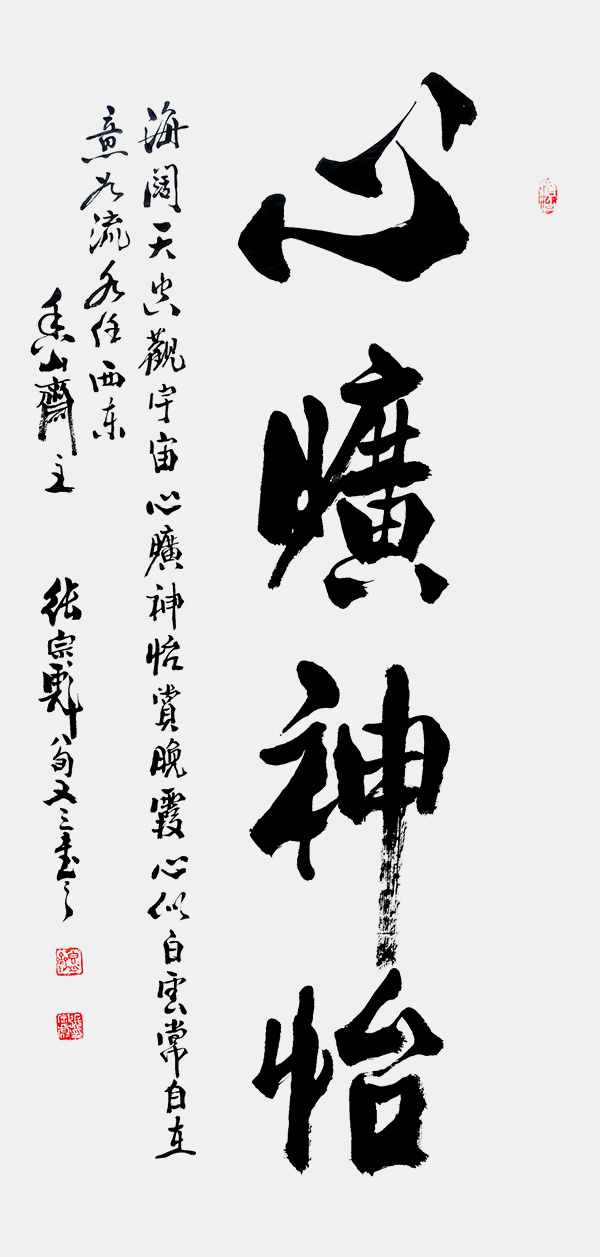 心曠神怡
海阔天空觀宇宙心曠神怡賞晚霞心似白雲常自在
意如流水任西东
香山齋主
张宗彪八旬又三書之